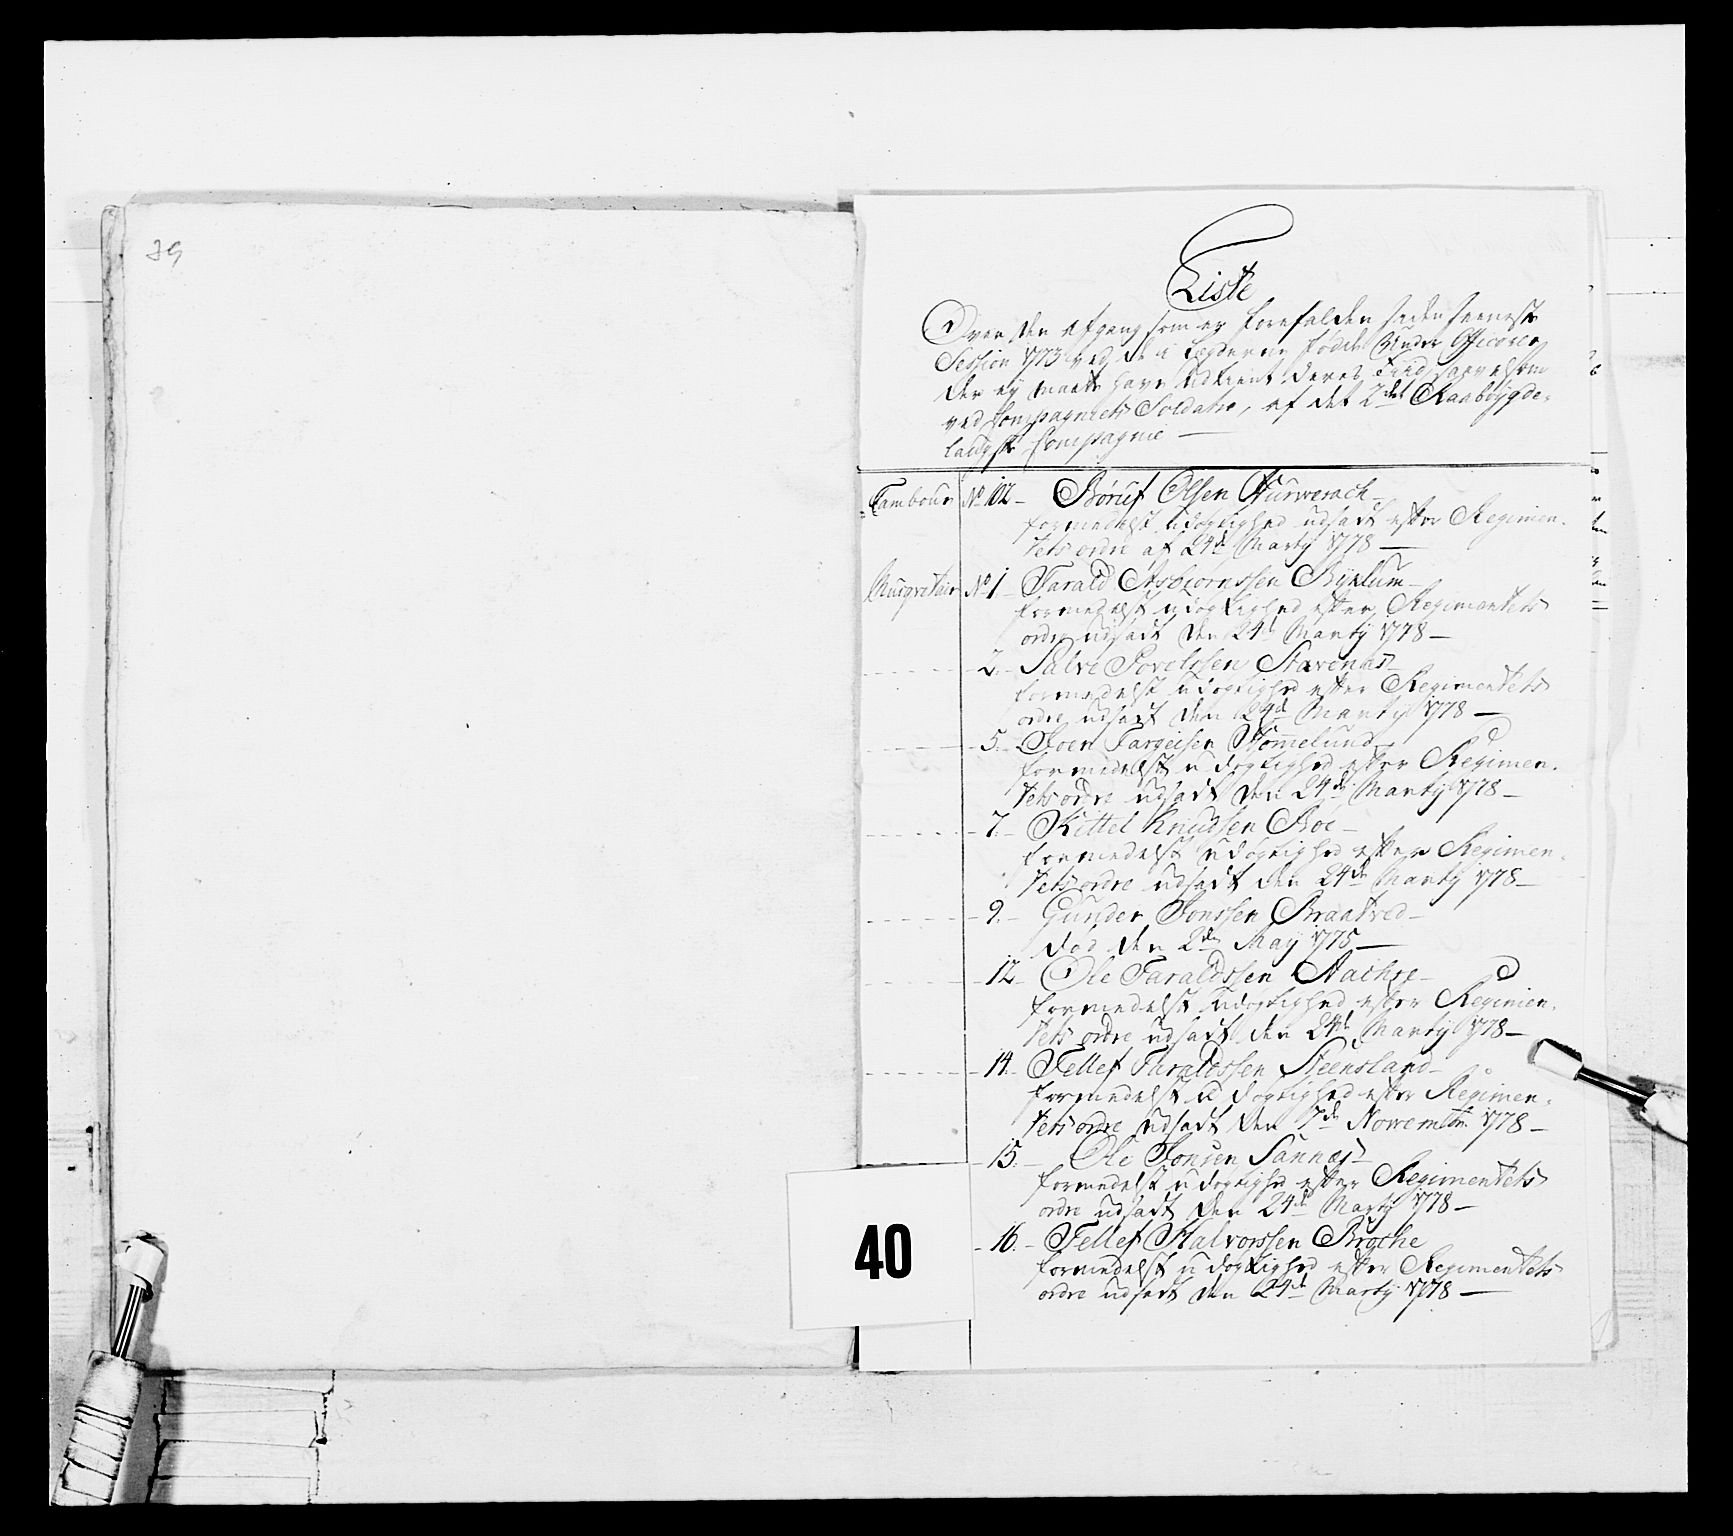 39
Liste
Over den Afgang som er forefalden siden seeneste
Session 1773 ved de i Lægderne fødde Under Officerer
der ey maatte have udtient deres Tiid, saavelsom
ved Compagniets Soldater, af det 2det Raabøygde-
laugske Compagnie —
Tambour No 102 - Børuf Olsen
formedelst udøgtighed udsadt efter Regimen-
tets ordre af 24de Martj 1778 —
Musqvetair No 1 - Tarald Asbiørnssen Bÿklum -
formedelst udøgtighed efter Regimentets
ordre udsadt den 24de Martj 1778 —
2. Salve Povelssen Stavenæs -
formedelst udøgtighed efter Regimentets
ordre udsadt den 24de Martj 1778 —
5. Joen Targeisen Hommelund
formedelst udøgtighed efter Regimen-
tets ordre udsadt den 24de Martj 1778 —
7. - Kittel Knudsen Boe -
formedelst udøgtighed efter Regimen-
tets ordre udsadt den 24de Martj 1778 —
9. - Gunder Jonssen Braatved -
død den 2de Maÿ 1775 —
12 Ole Taraldssen
formedelst udøgtighed efter Regimen-
tets ordre udsadt den 24de Martj 1778 —
14. Tellef Taraldssen Steensland -
formedelst udøgtighed efter Regimen-
tets ordre udsadt den 7de Novembr. 1778 —
15. Ole Jonsen Sannæs -
formedelst udøgtighed efter Regimentets
ordre udsadt den 24de Martj 1778 —
16. - Tellef Halvorssen Broche
formedelst udøgtighed efter Regimentets
ordre udsadt den 24de Martj 1778 —
40